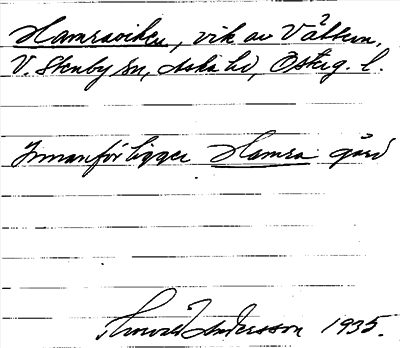 Hamraviken, vik av Vättern,
V. Stenby sn, Aska hd, Österg. l.
Innanför ligger Hamra gård
Thorvald Andersson 1935.